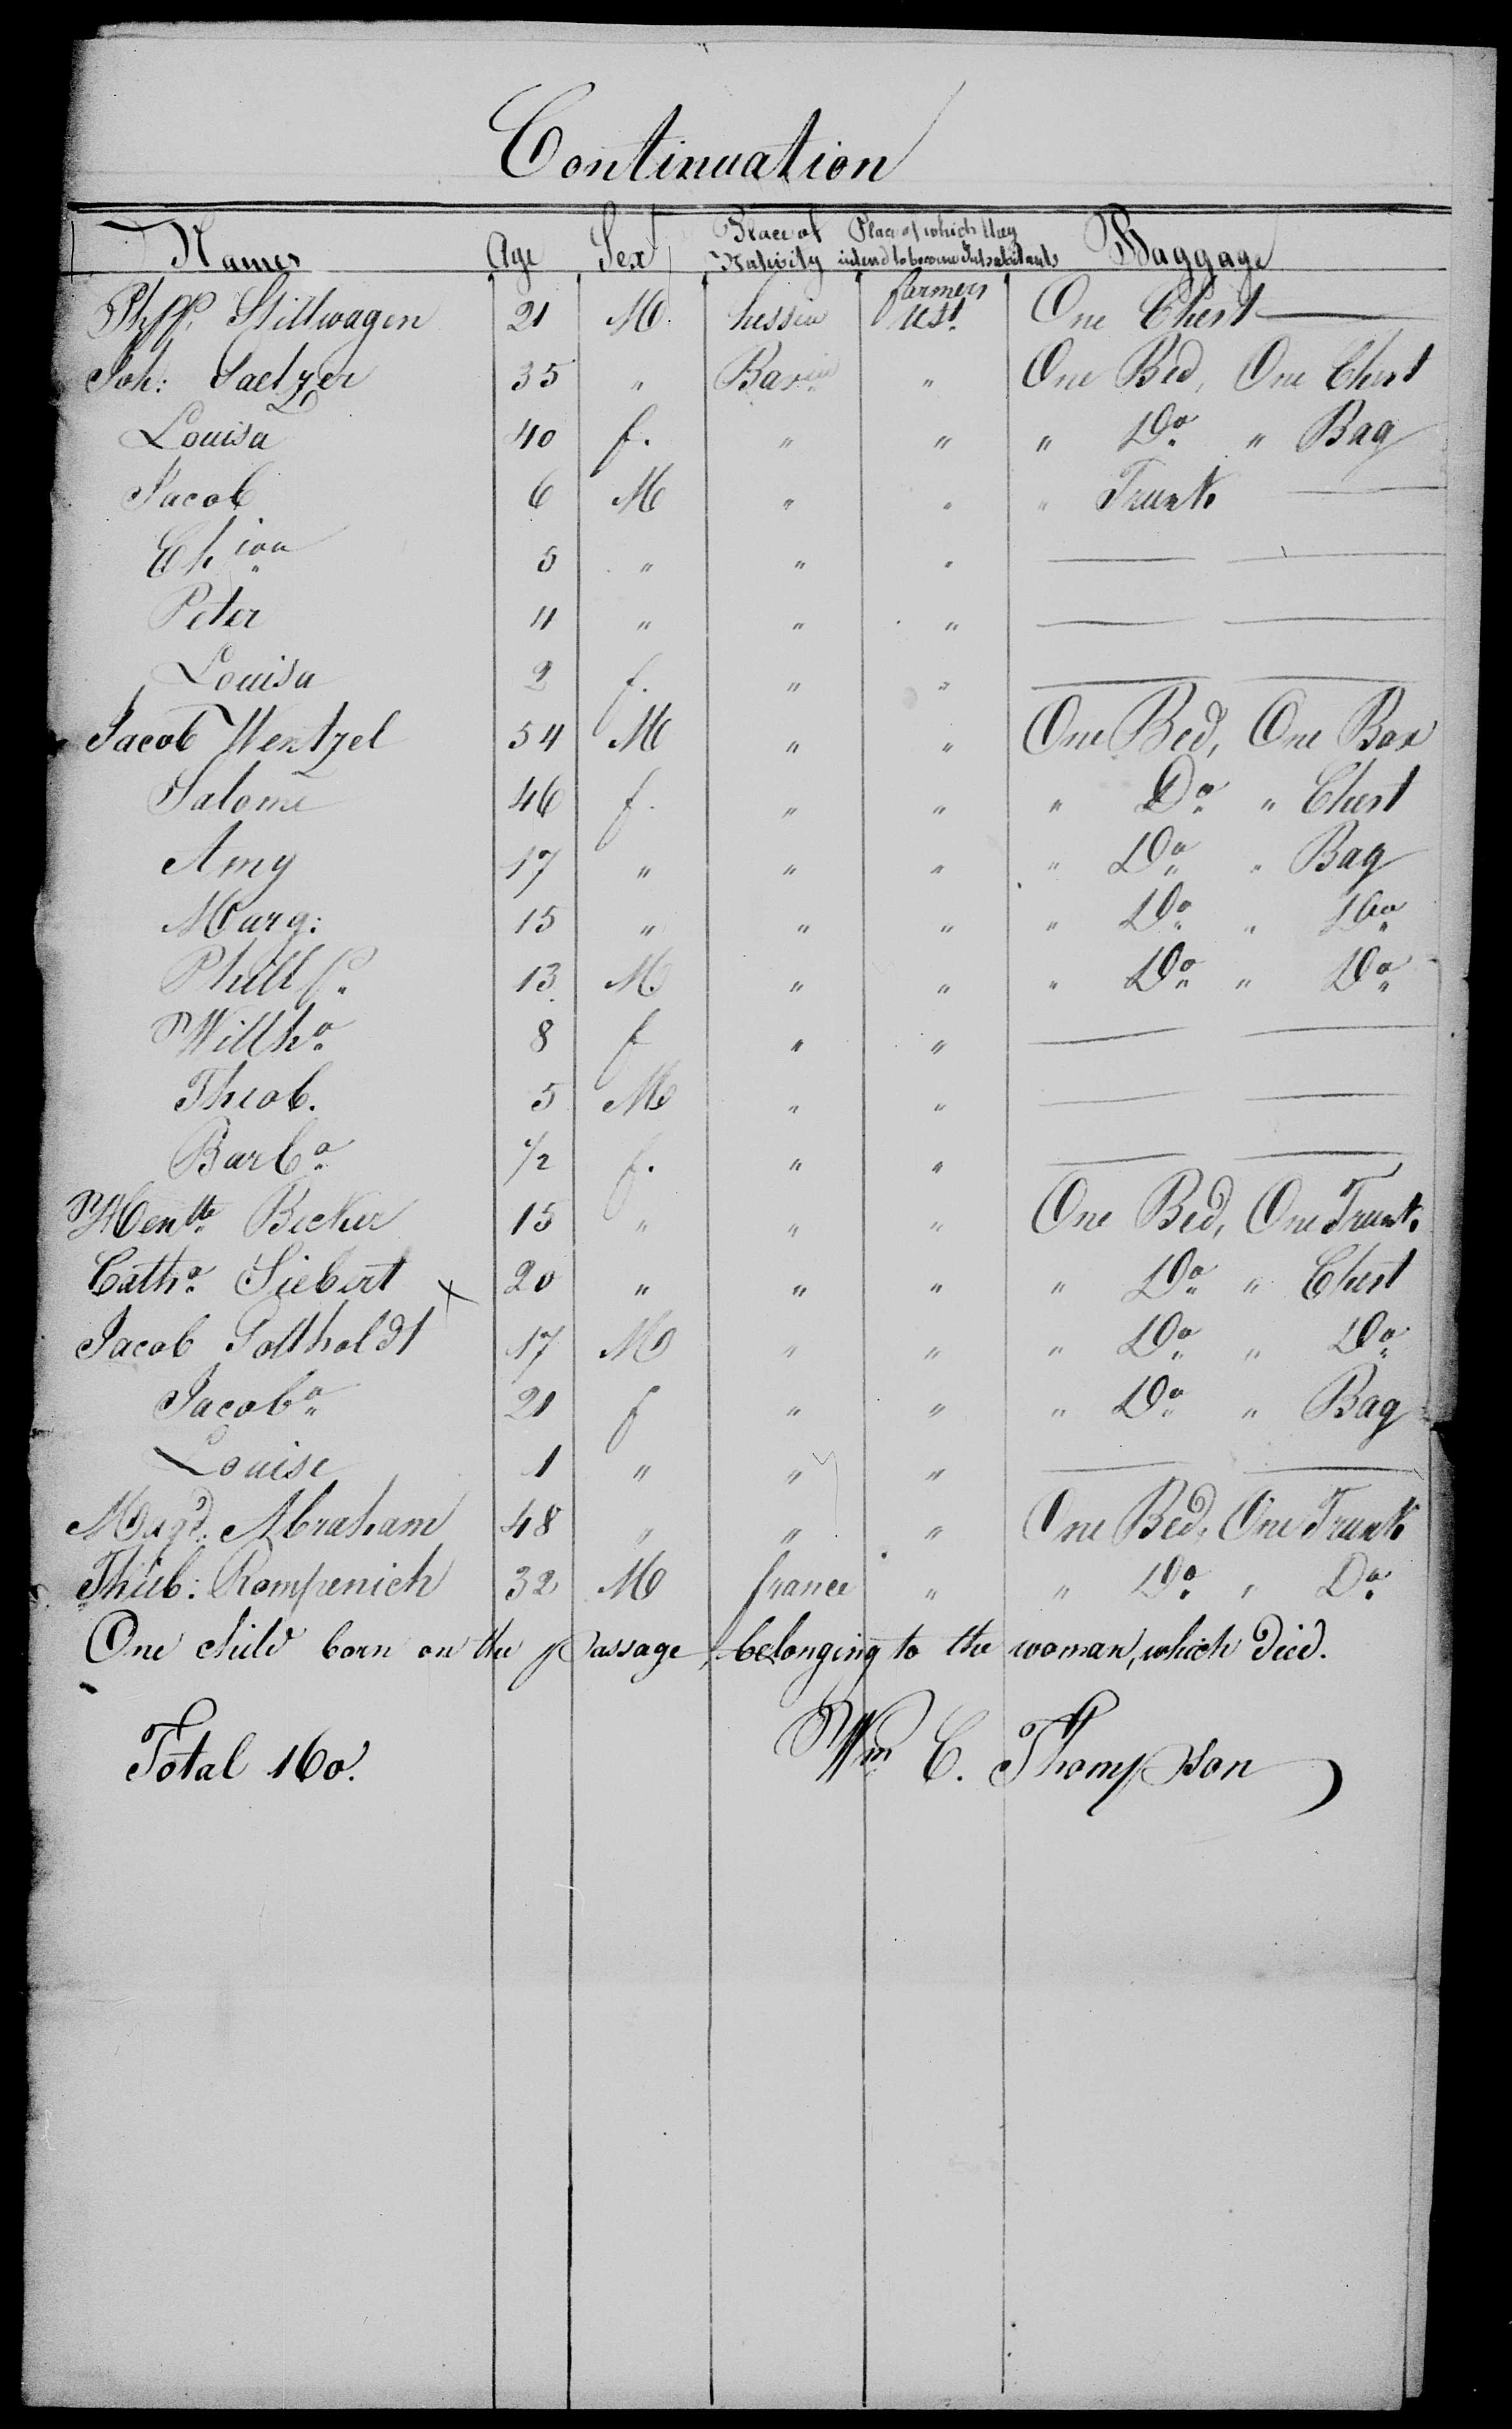 Continuation
Names Age Sex Place of Nativity Place of which they intend to become Inhabitants Baggage
farmers
Phpp. Stillwagen 21 M. hessia USt. One Chest
Joh: Saelzer 35 " Bavia " One Bed, One Chest
Louisa 40 f. " " " Do " Bag
Jacob 6 M " " " Trunk
Ch ian 5 " " "
Peter 4 " " "
Louisa 2 f. " "
Jacob Wentzel 54 M " " One Bed, One Box
Salome 46 f. " " " Do " Chest
Amy 17 " " " " Do " Bag
Marg: 15 " " " " Do " Do
Phill p. 13 M. " " " Do " Do
Willha 8 f " "
Theob. 5 M " "
Barba 1/2 f. " "
Becker 15 " " " One Bed, One Trunk
Catha Siebert x 20 " " " " Do " Chest
Jacob Potthaldt 17 M " " " Do " Do
Jacoba 21 f " " " Do " Bag
Louise 1 " " "
Magd. Abraham 48 " " " One Bed, One Trunk
Thieb: Rompenich 32 M france " " Do " Do
One child born on the passage, belonging to the woman, which died.
Total 160. Wm C. Thompson